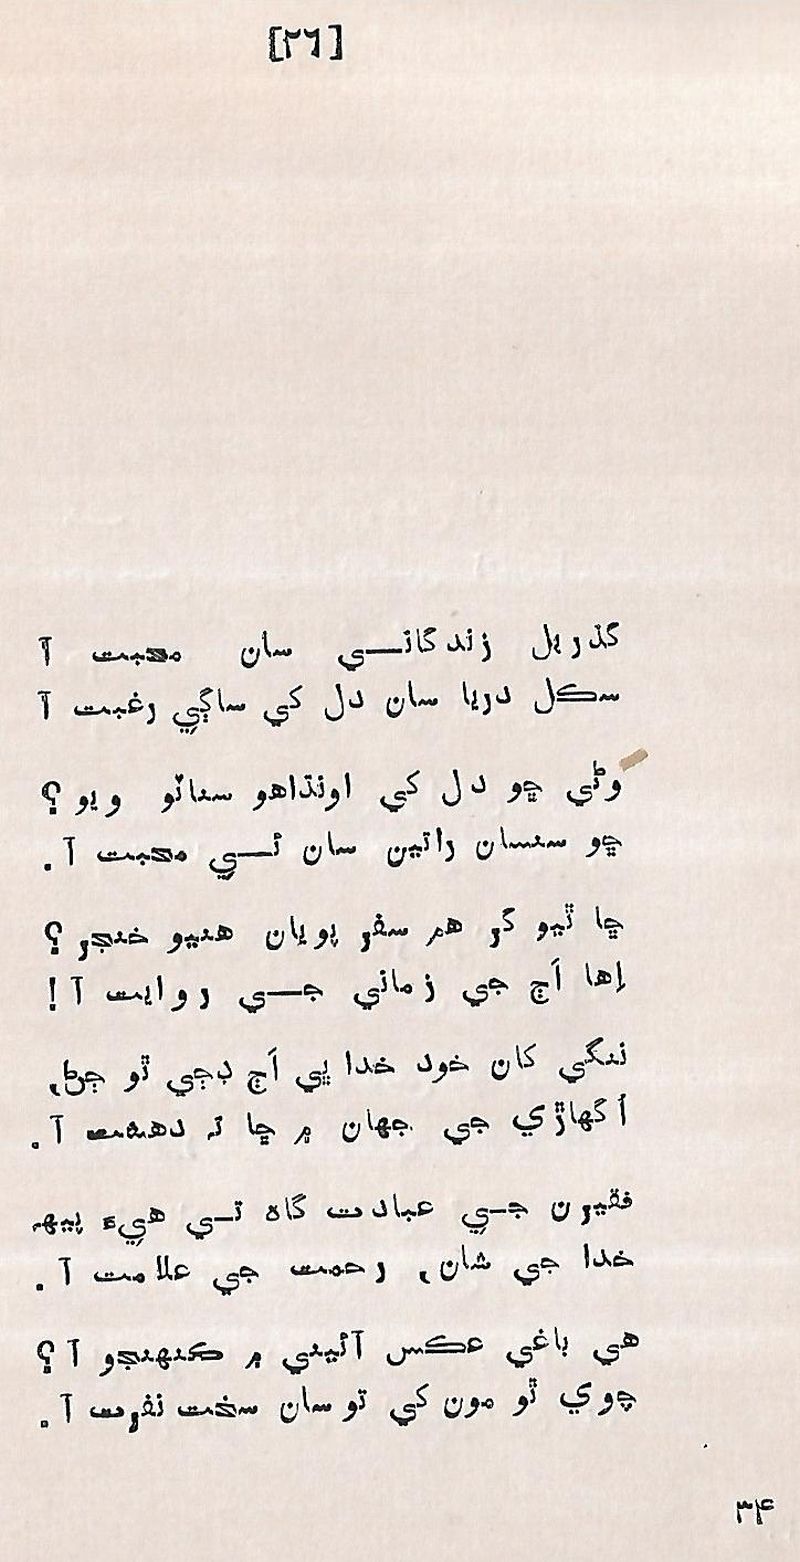 [٢٦]
گذريل زندگانــي سان محبت آ
سڪل دريا سان دل کي ساڳي رغبت آ
وڻي ڇو دل کي اونڌاهو سناٽو ويو؟
ڇو سنسان راتين سان ئــي محبت آ.
ڇا ٿيو گر هم سفر پويان هنيو خنجر؟
اِها اَڄ جي زماني جــي روايت آ!
ننگي کان خود خدا ڀي اَڄ ڊڄي ٿو ڄڻ،
اُگهاڙي جي جهان ۾ ڇا تہ دهشت آ.
فقيرن جــي عبادت گاه تــي هيءَ ڀيهہ
خدا جي شان، رحمت جي علامت آ.
هي باغي عڪس آئيني ۾ ڪنهنجو آ؟
چوي ٿو مون کي تو سان سخت نفرت آ.
٣۴